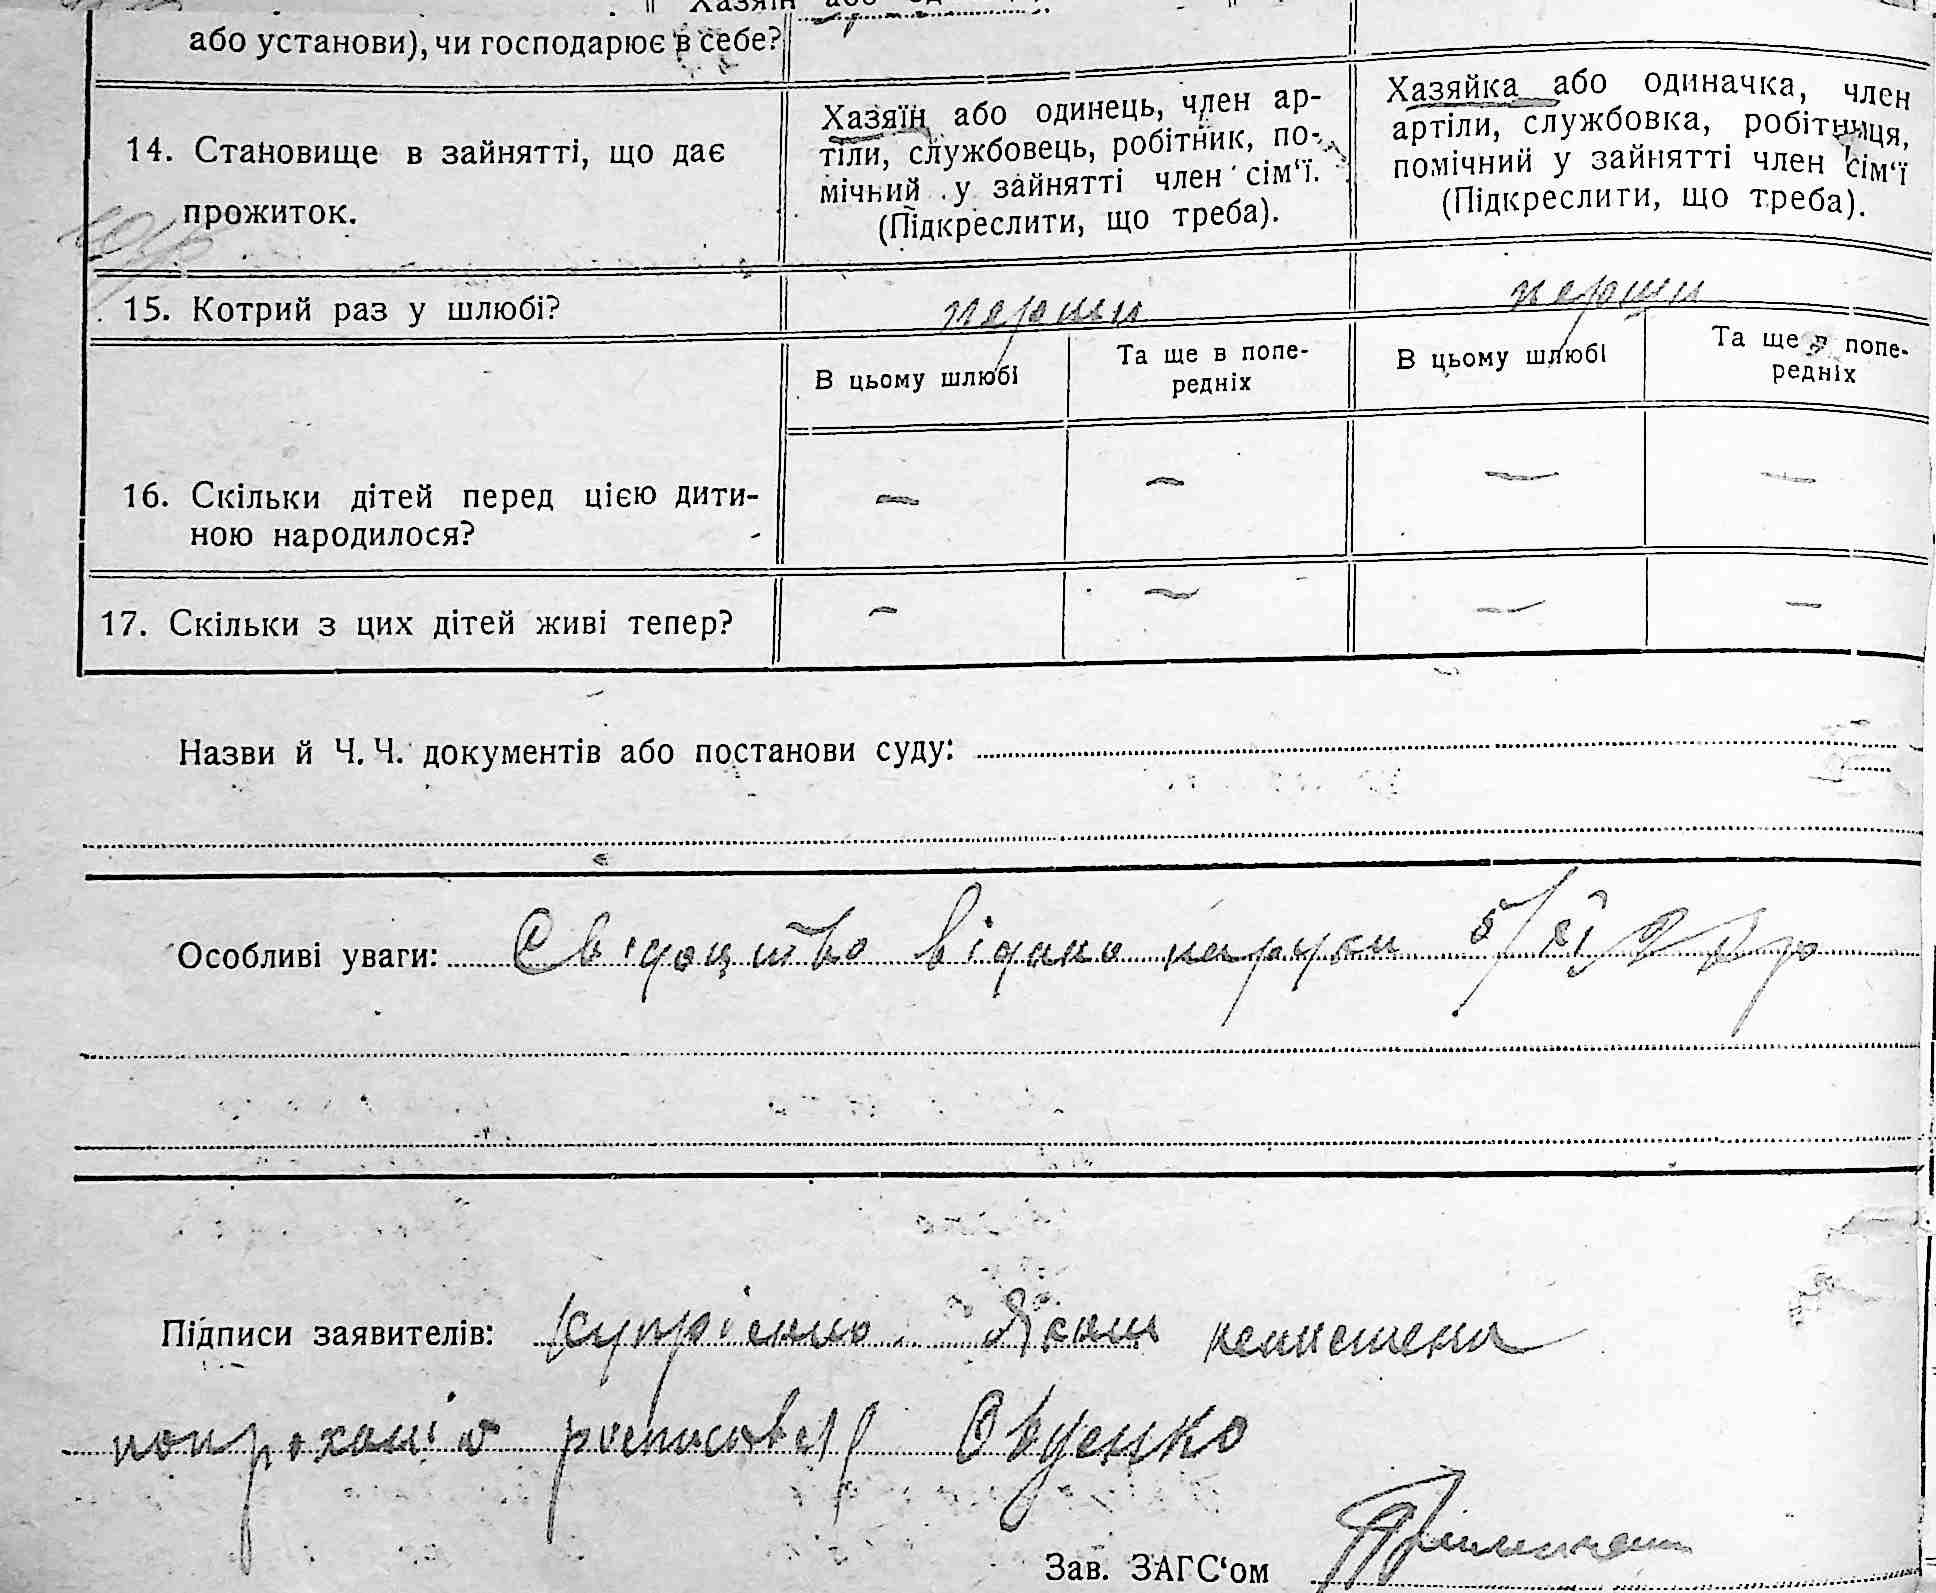 Хазяїн або
або установи), чи господарює в себе?
14. Становище в зайнятті, що дає
прожиток.
Хазяїн або одинець, член ар-
тіли, службовець, робітник, по-
мічний у зайнятті член сім'ї.
(Підкреслити, що треба).
Хазяйка або одиначка, член
артіли, службовка, робітниця,
помічний у зайнятті член сім'ї
(Підкреслити, що треба).
15. Котрий раз у шлюбі?
перши
перши
В цьому шлюбі
Та ще в попе-
редніх
В цьому шлюбі
Та ще в попе-
редніх
16. Скільки дітей перед цією дити-
ною народилося?
— — — —
17. Скільки з цих дітей живі тепер?
— — — —
Назви й Ч. Ч. документів або постанови суду:
Особливі уваги: Свідоцтво видано на руки 5/XI
Підписи заявителів: Купрієнко Яким неписмени
по проханію росписавсь Овденко
Зав. ЗАГС'ом